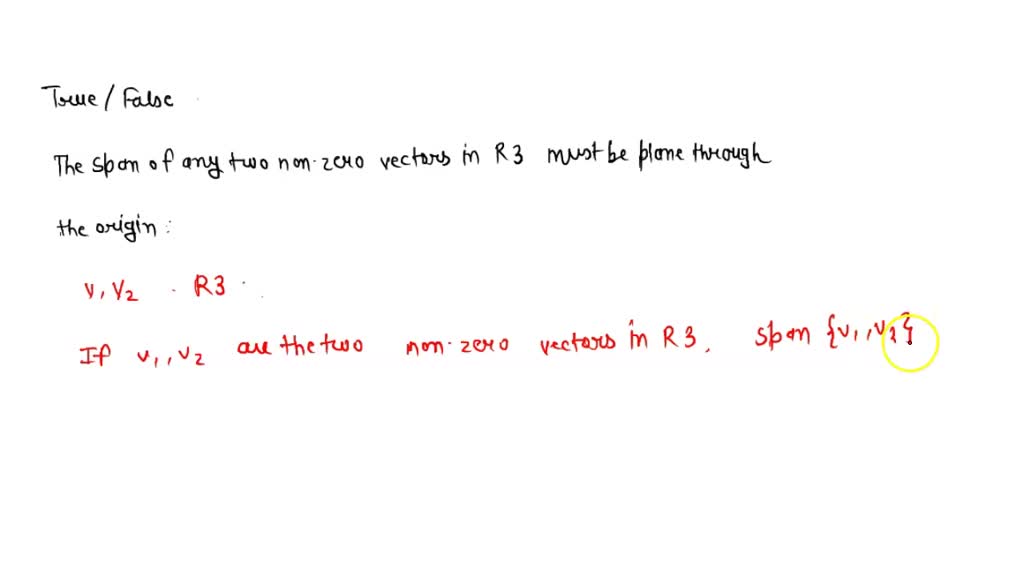 True / False
The span of any two non-zero vectors in R3 must be plane through
the origin :
v, v2 . R3 .
If v1, v2 are the two non-zero vectors in R3, span {v1, v2}